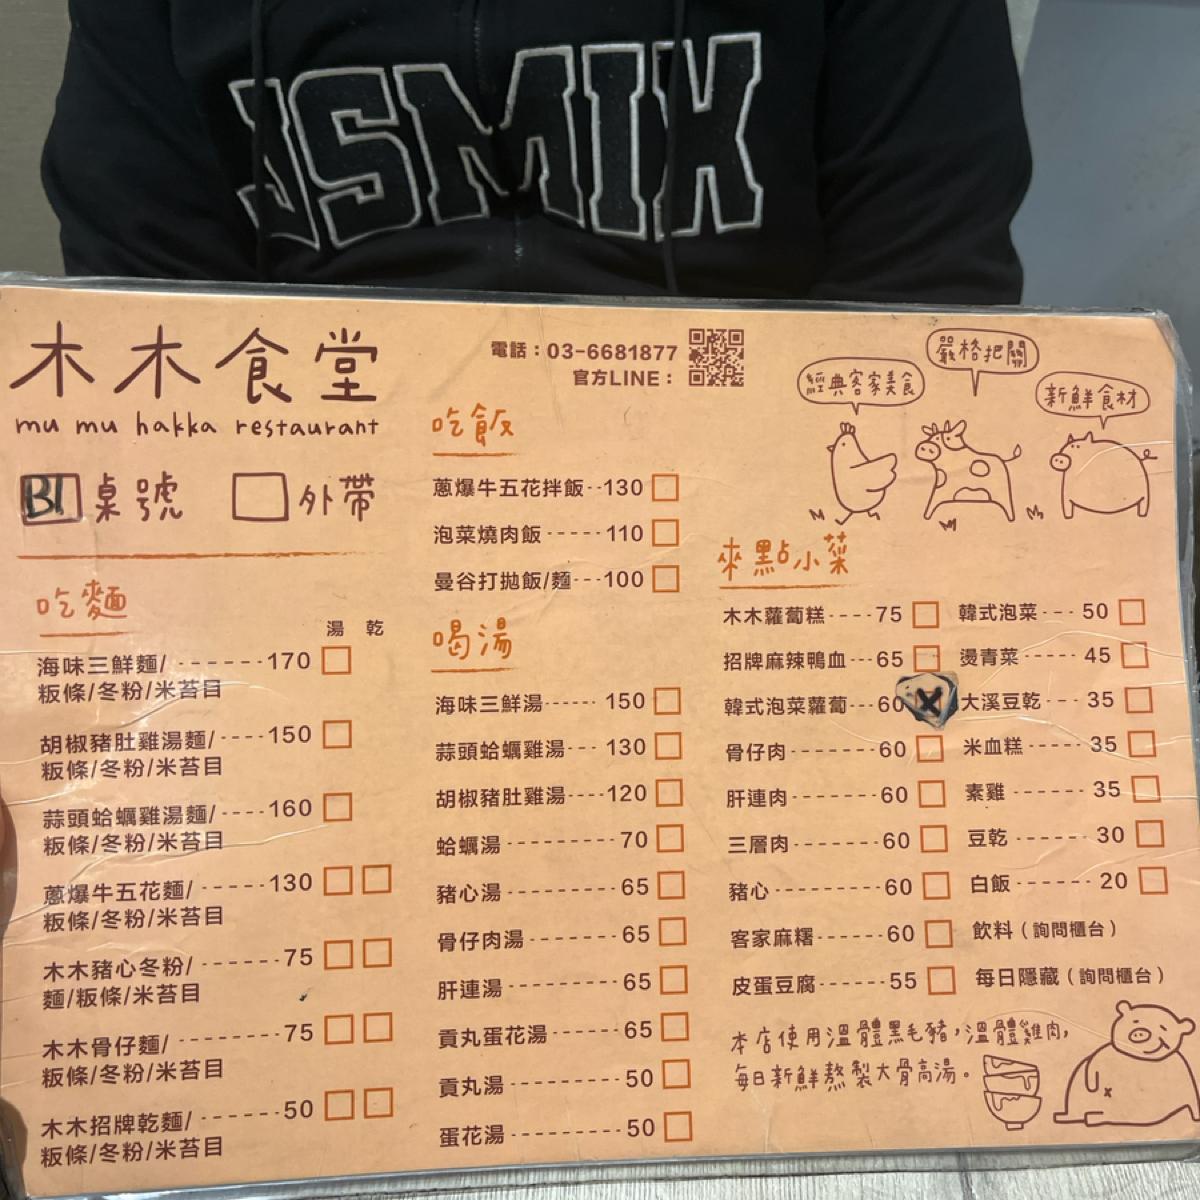 JSMIX
木木食堂
mu mu hakka restaurant
電話：03-6681877
官方LINE：
經典客家美食
嚴格把關
新鮮食材
B1 桌號
外帶
吃麵
湯 乾
海味三鮮麵/ ------- 170
粄條/冬粉/米苔目
胡椒豬肚雞湯麵/ ----- 150
粄條/冬粉/米苔目
蒜頭蛤蠣雞湯麵/ ----- 160
粄條/冬粉/米苔目
蔥爆牛五花麵/ ----- 130
粄條/冬粉/米苔目
木木豬心冬粉/ ------- 75
麵/粄條/米苔目
木木骨仔麵/ --------- 75
粄條/冬粉/米苔目
木木招牌乾麵/ ------- 50
粄條/冬粉/米苔目
吃飯
蔥爆牛五花拌飯--130
泡菜燒肉飯 ----- 110
曼谷打拋飯/麵---100
喝湯
海味三鮮湯------ 150
蒜頭蛤蠣雞湯--- 130
胡椒豬肚雞湯----120
蛤蠣湯 --------- 70
豬心湯 --------- 65
骨仔肉湯 ------- 65
肝連湯 --------- 65
貢丸蛋花湯 ----- 65
貢丸湯 --------- 50
蛋花湯 --------- 50
來點小菜
木木蘿蔔糕---- 75
招牌麻辣鴨血--- 65
韓式泡菜蘿蔔---60
骨仔肉 ------- 60
肝連肉 ------- 60
三層肉 ------- 60
豬心 --------- 60
客家麻糬------ 60
皮蛋豆腐------ 55
韓式泡菜 --- 50
燙青菜 ----- 45
大溪豆乾--- 35
米血糕 ----- 35
素雞 ------- 35
豆乾 ------ 30
白飯 ------ 20
飲料（詢問櫃台）
每日隱藏（詢問櫃台）
本店使用溫體黑毛豬，溫體雞肉，
每日新鮮熬製大骨高湯。